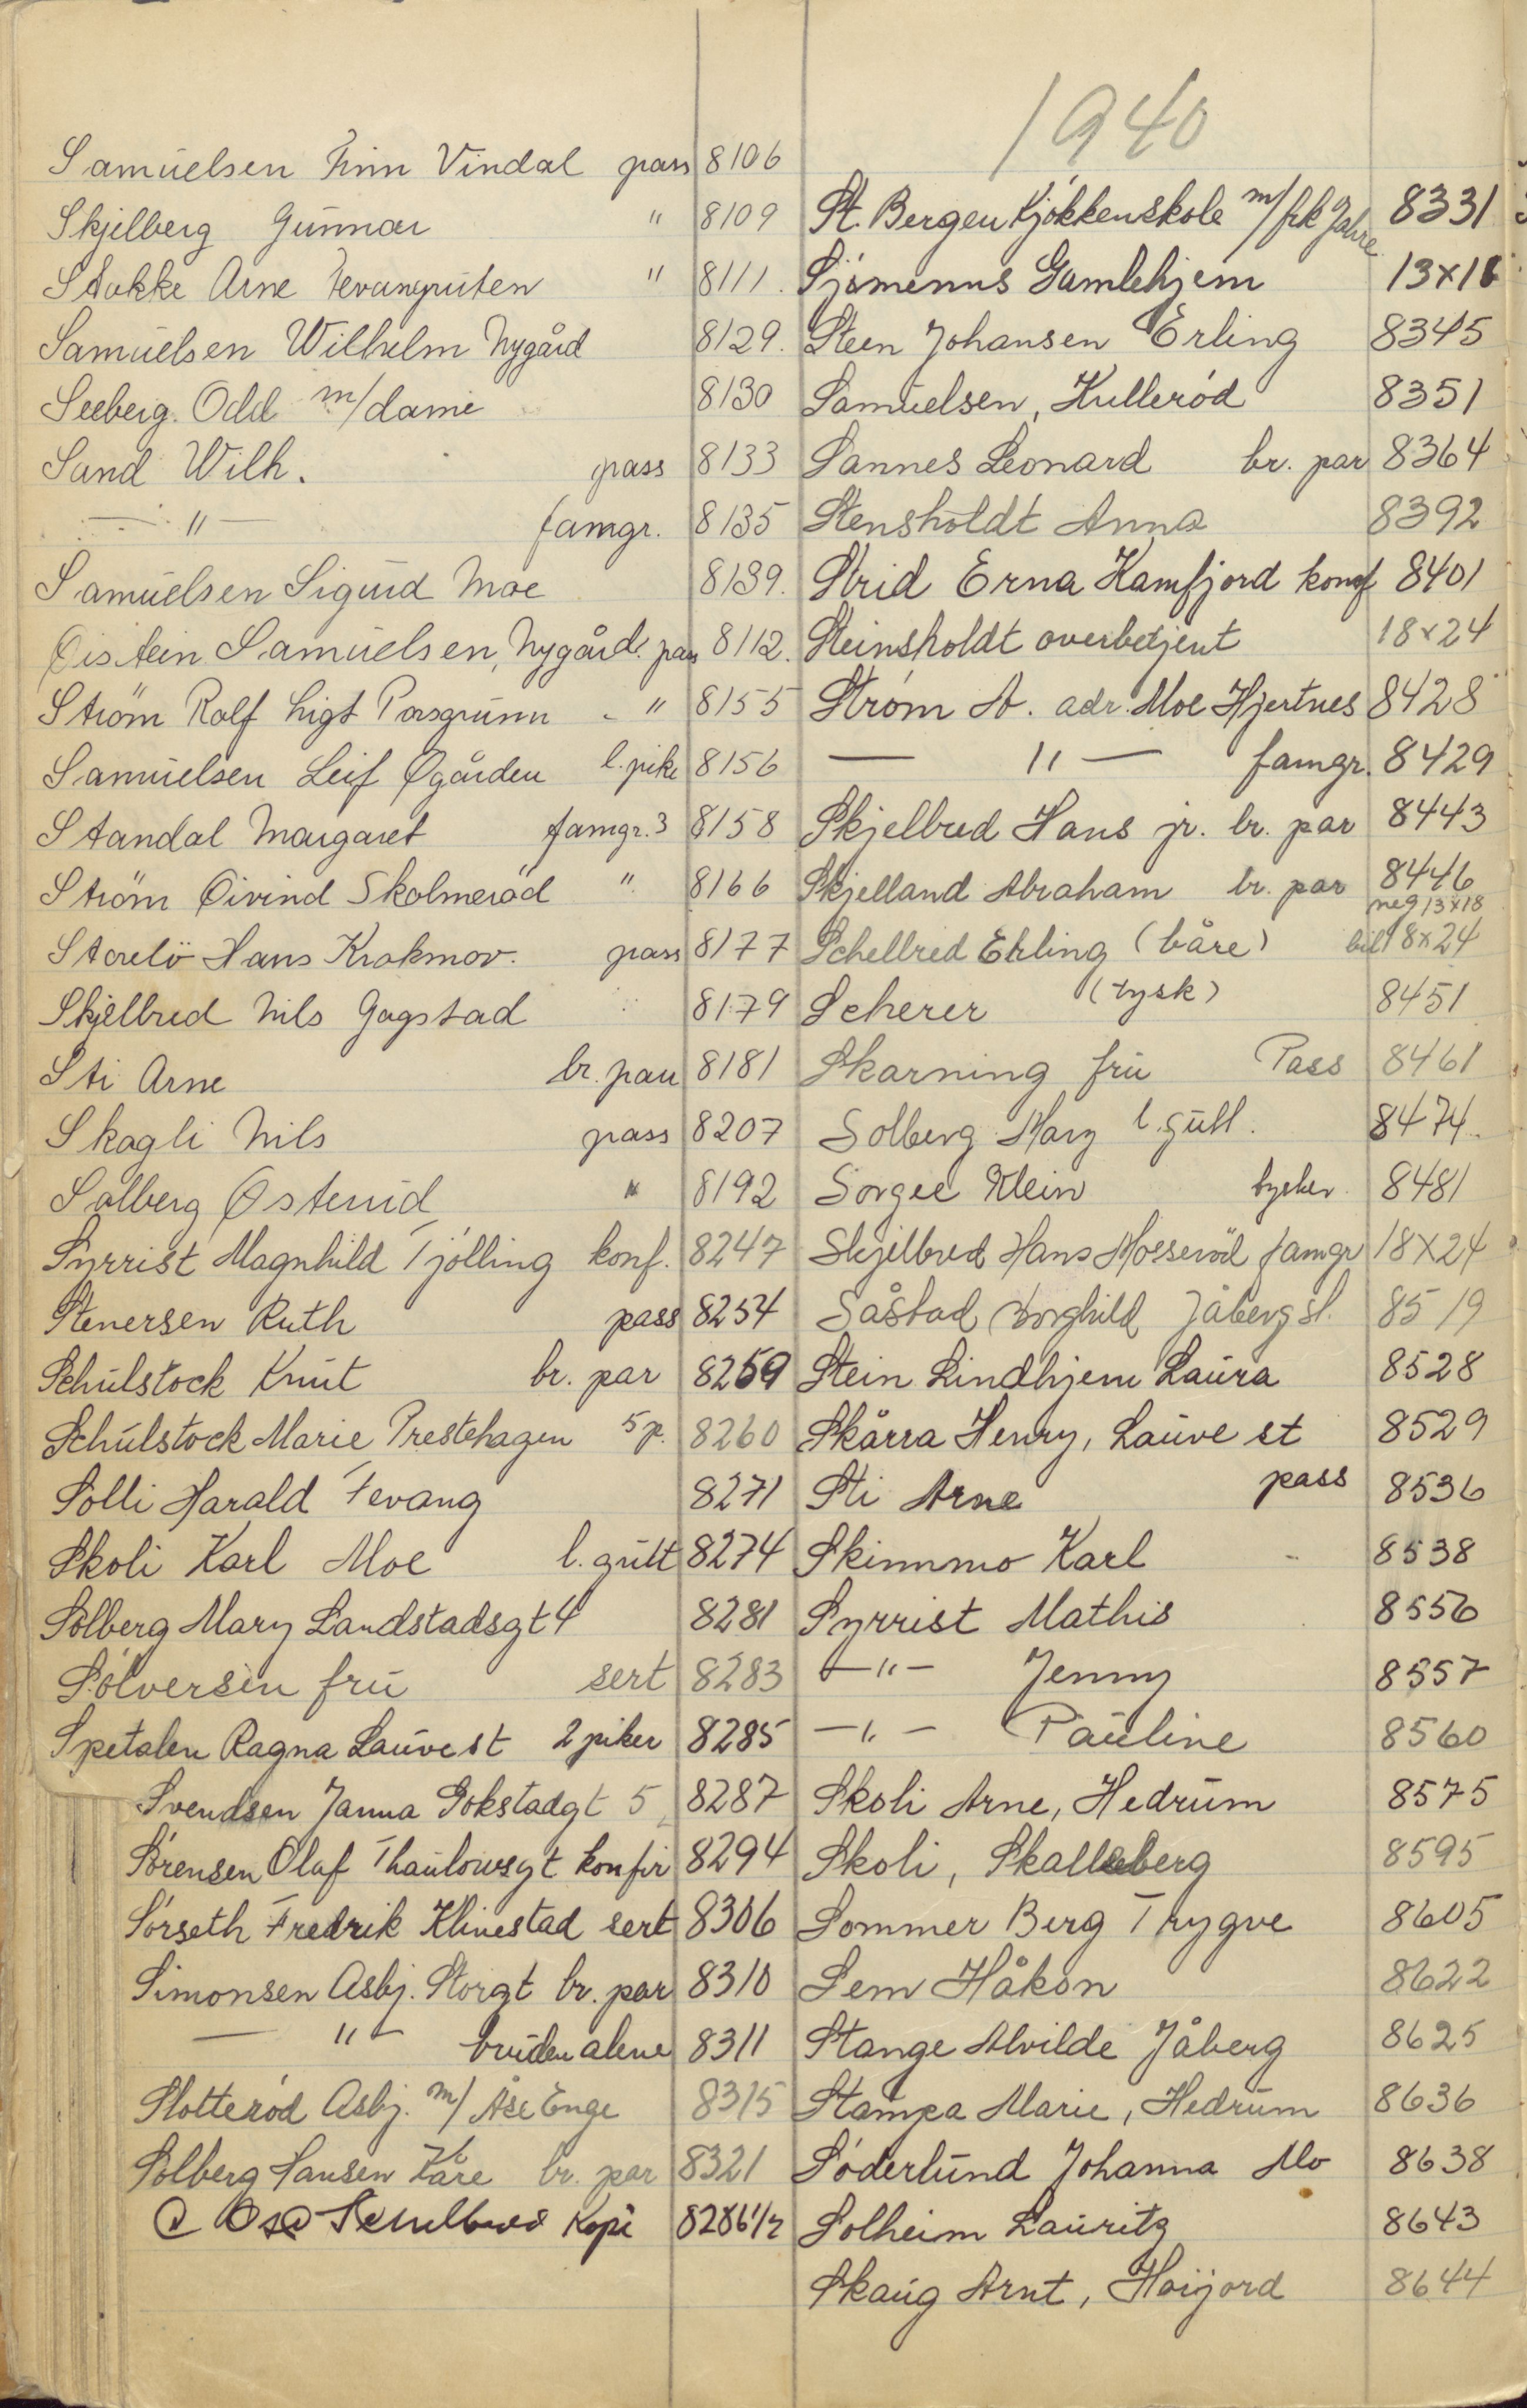 1940
Samuelsen Finn Vindal pass 8106
Skjelberg Gunnar " 8109
Stokke Arne Fevangruten " 8111.
Samuelsen Wilhelm Nygård 8129.
Seeberg. Odd m/dame 8130
Sand Wilh. pass 8133
— " — famgr. 8135
Samuelsen Sigurd Moe 8139.
Øistein Samuelsen, Nygård. pass 8112.
Strøm Rolf Ligt Porsgrunn - " 8155
Samuelsen Leif Øgården l. pike 8156
Standal Margaret famgr. 3 8158
Strøm Øivind Skolmerød " 8166
Storelö Hans Krokmov. pass 8177
Skjelbred Nils Gogstad 8179
Sti Arne br. par 8181
Skogli Nils pass 8207
Solberg Østerud " 8192
Syrrist Magnhild Tjølling konf. 8247
Stenersen Ruth pass 8254
Schulstock Knut br. par 8259
Schulstock Marie Prestehagen 5 p. 8260
Solli Harald Fevang 8271
Skoli Karl Moe l. gutt 8274
Solberg Mary Landstadsgt 4 8281
Sølversen fru sert 8283
Spetalen Ragna Lauve st 2 piker 8285
Svendsen Janna Gokstadgt 5 8287
Sørensen Olaf Thaulowsgt konfir 8294
Sørseth Fredrik Klinestad sert 8306
Simonsen Asbj. Storgt br. par 8310
— " — bruden alene 8311
Slotterød Asbj. m/ Åse Enge 8315
Solberg Hansen Kåre br. par 8321
Kopi 8286 1/2
St. Bergen Kjøkkenskole m/frk Jahre 8331
Sjømenns Gamlehjem 13x18
Steen Johansen Erling 8345
Samuelsen, Kullerød 8351
Sannes Leonard br. par 8364
Stensholdt Anna 8392
Strid Erna Kamfjord konf 8401
Steinsholdt overbetjent 18x24
Strøm A. adr. Moe Hjertnes 8428
— " — famgr. 8429
Skjelbred Hans jr. br. par 8443
Skjelland Abraham br. par 8446
neg 13x18
Schelbred Erling (båre) bil 18x24
Scherer (tysk) 8451
Skarning fru Pass 8461
Solberg Mary l. gutt. 8474.
Sorgee Klein tysker 8481
Skjelbred Hans Mosserød famgr 18x24
Såstad Borghild Jåberg st. 8519
Stein Lindhjem Laura 8528
Skårra Henry, Lauve st 8529
Sti Arne pass 8536
Skinnmo Karl - 8538
Syrrist Mathis 8556
— " — Jenny 8557
— " — Pauline 8560
Skoli Arne, Hedrum 8575
Skoli, Skalleberg 8595
Sommer Berg Trygve 8605
Sem Håkon 8622
Stange Alvilde Jåberg 8625
Stampa Marie, Hedrum 8636
Søderlund Johanna Mo 8638
Solheim Lauritz 8643
Skaug Arnt, Høijord 8644